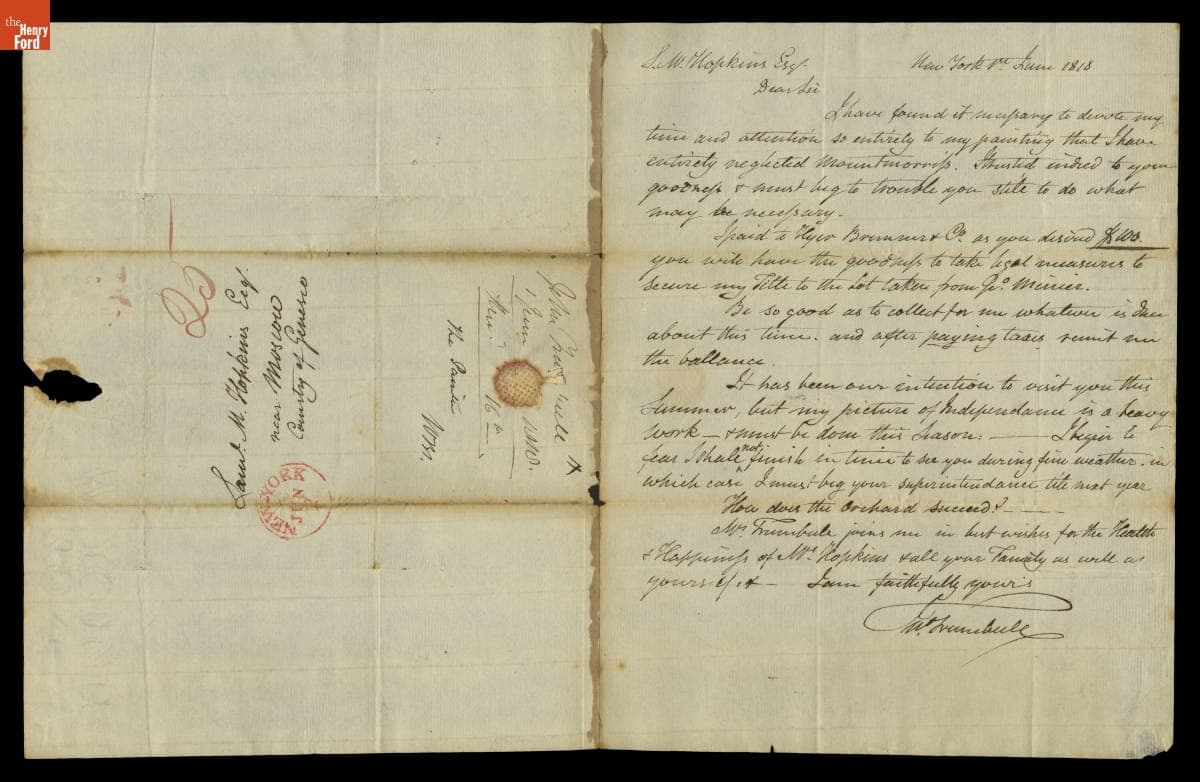 the
Henry
Ford
S. M. Hopkins Esqr.
New York 1st June 1818
Dear Sir
I have found it necessary to devote my
time and attention so entirely to my painting that I have
entirely neglected Mountmorriss. I trusted indeed to your
goodness & must beg to trouble you still to do what
may be necessary.
I paid to Hyer Bremner & Co. as you desired $100.
you will have the goodness to take legal measures to
secure my Title to the Lot taken from Geo. Minier.
Be so good as to collect for me whatever is Due
about this time. and after paying taxes remit me
the ballance.
It has been our intention to visit you this
Summer, but my picture of Independance is a heavy
work — & must be done this Season: — I begin to
fear I shall not finish in time to see you during fine weather. in
which case I must beg your superintendance till next year
How does the Orchard succeed? —
Mrs. Trumbull joins me in best wishes for the Health
& Happiness of Mrs. Hopkins & all your Family as well as
yourself & — I am faithfully yours
Jno. Trumbull
25
Saml. M. Hopkins Esq.
near Moscow
County of Genesio
NEW-YORK
JUN
John Trumbull
1 June 1818.
16th
The Painter